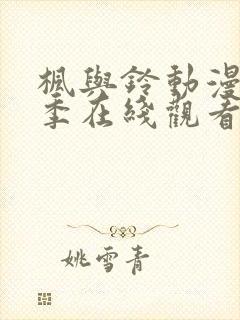 楓與鈴動漫
季在綫觀看
姚雪青